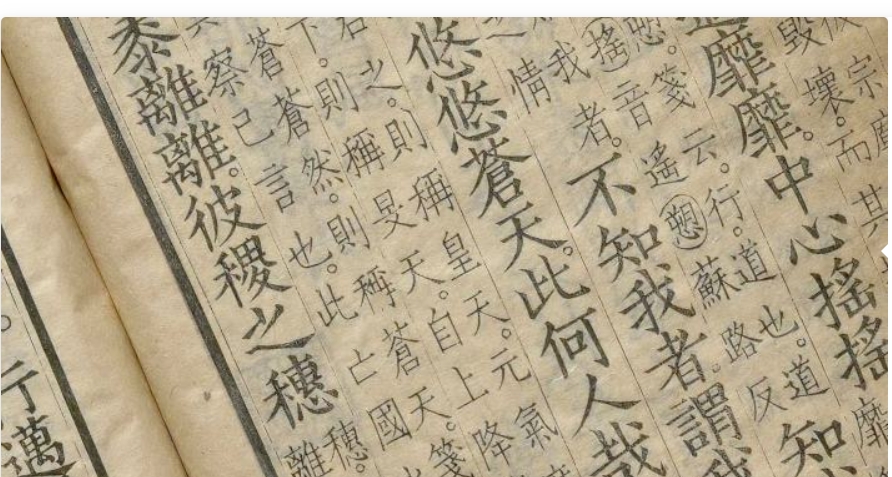 彼宗廟
毀壞。而其
靡靡。中心搖搖。靡
愬。箋云。行。道也。道
搖音遙愬蘇路反
知我
我者。
情
不知我者。謂我
悠悠蒼天。此何人哉
之。則稱皇天。元氣
下。則稱旻天。自上降
蒼蒼然。則稱蒼天。箋
察己言也。此亡國
黍離離。彼稷之穗
穗。
離
行邁